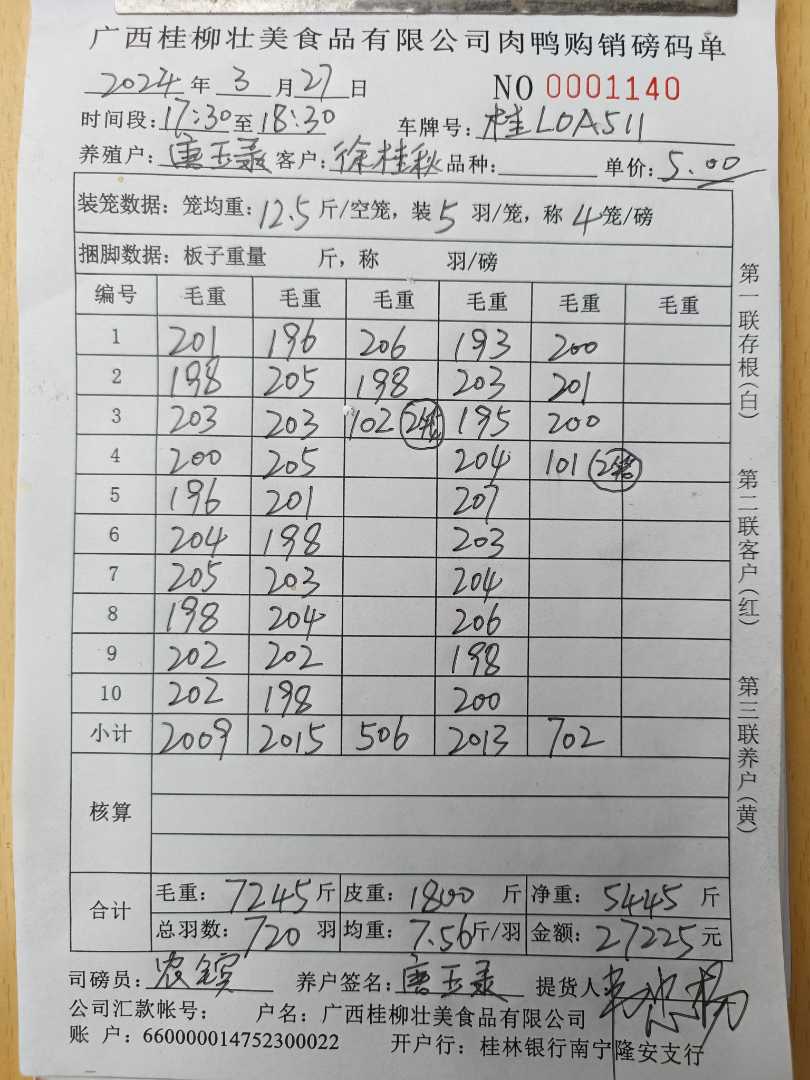 广西桂柳壮美食品有限公司肉鸭购销磅码单
2024年3月27日 NO 0001140
时间段:17:30至18:30 车牌号:桂L0A511
养殖户:唐玉录 客户:徐桂秋 品种: 单价:5.00
装笼数据:笼均重:12.5斤/空笼,装5羽/笼,称4笼/磅
捆脚数据:板子重量 斤,称 羽/磅
编号 毛重 毛重 毛重 毛重 毛重 毛重
1 201 196 206 193 200
2 198 205 198 203 201
3 203 203 102 2笼 195 200
4 200 205 204 101 2笼
5 196 201 207
6 204 198 203
7 205 203 204
8 198 204 206
9 202 202 198
10 202 198 200
小计 2009 2015 506 2013 702
核算
合计 毛重:7245斤 皮重:1800斤 净重:5445斤
总羽数:720羽 均重:7.56斤/羽 金额:27225元
司磅员: 养户签名:唐玉录 提货人:
公司汇款帐号: 户名:广西桂柳壮美食品有限公司
账 户:660000014752300022 开户行:桂林银行南宁隆安支行
第一联存根(白)
第二联客户(红)
第三联养户(黄)